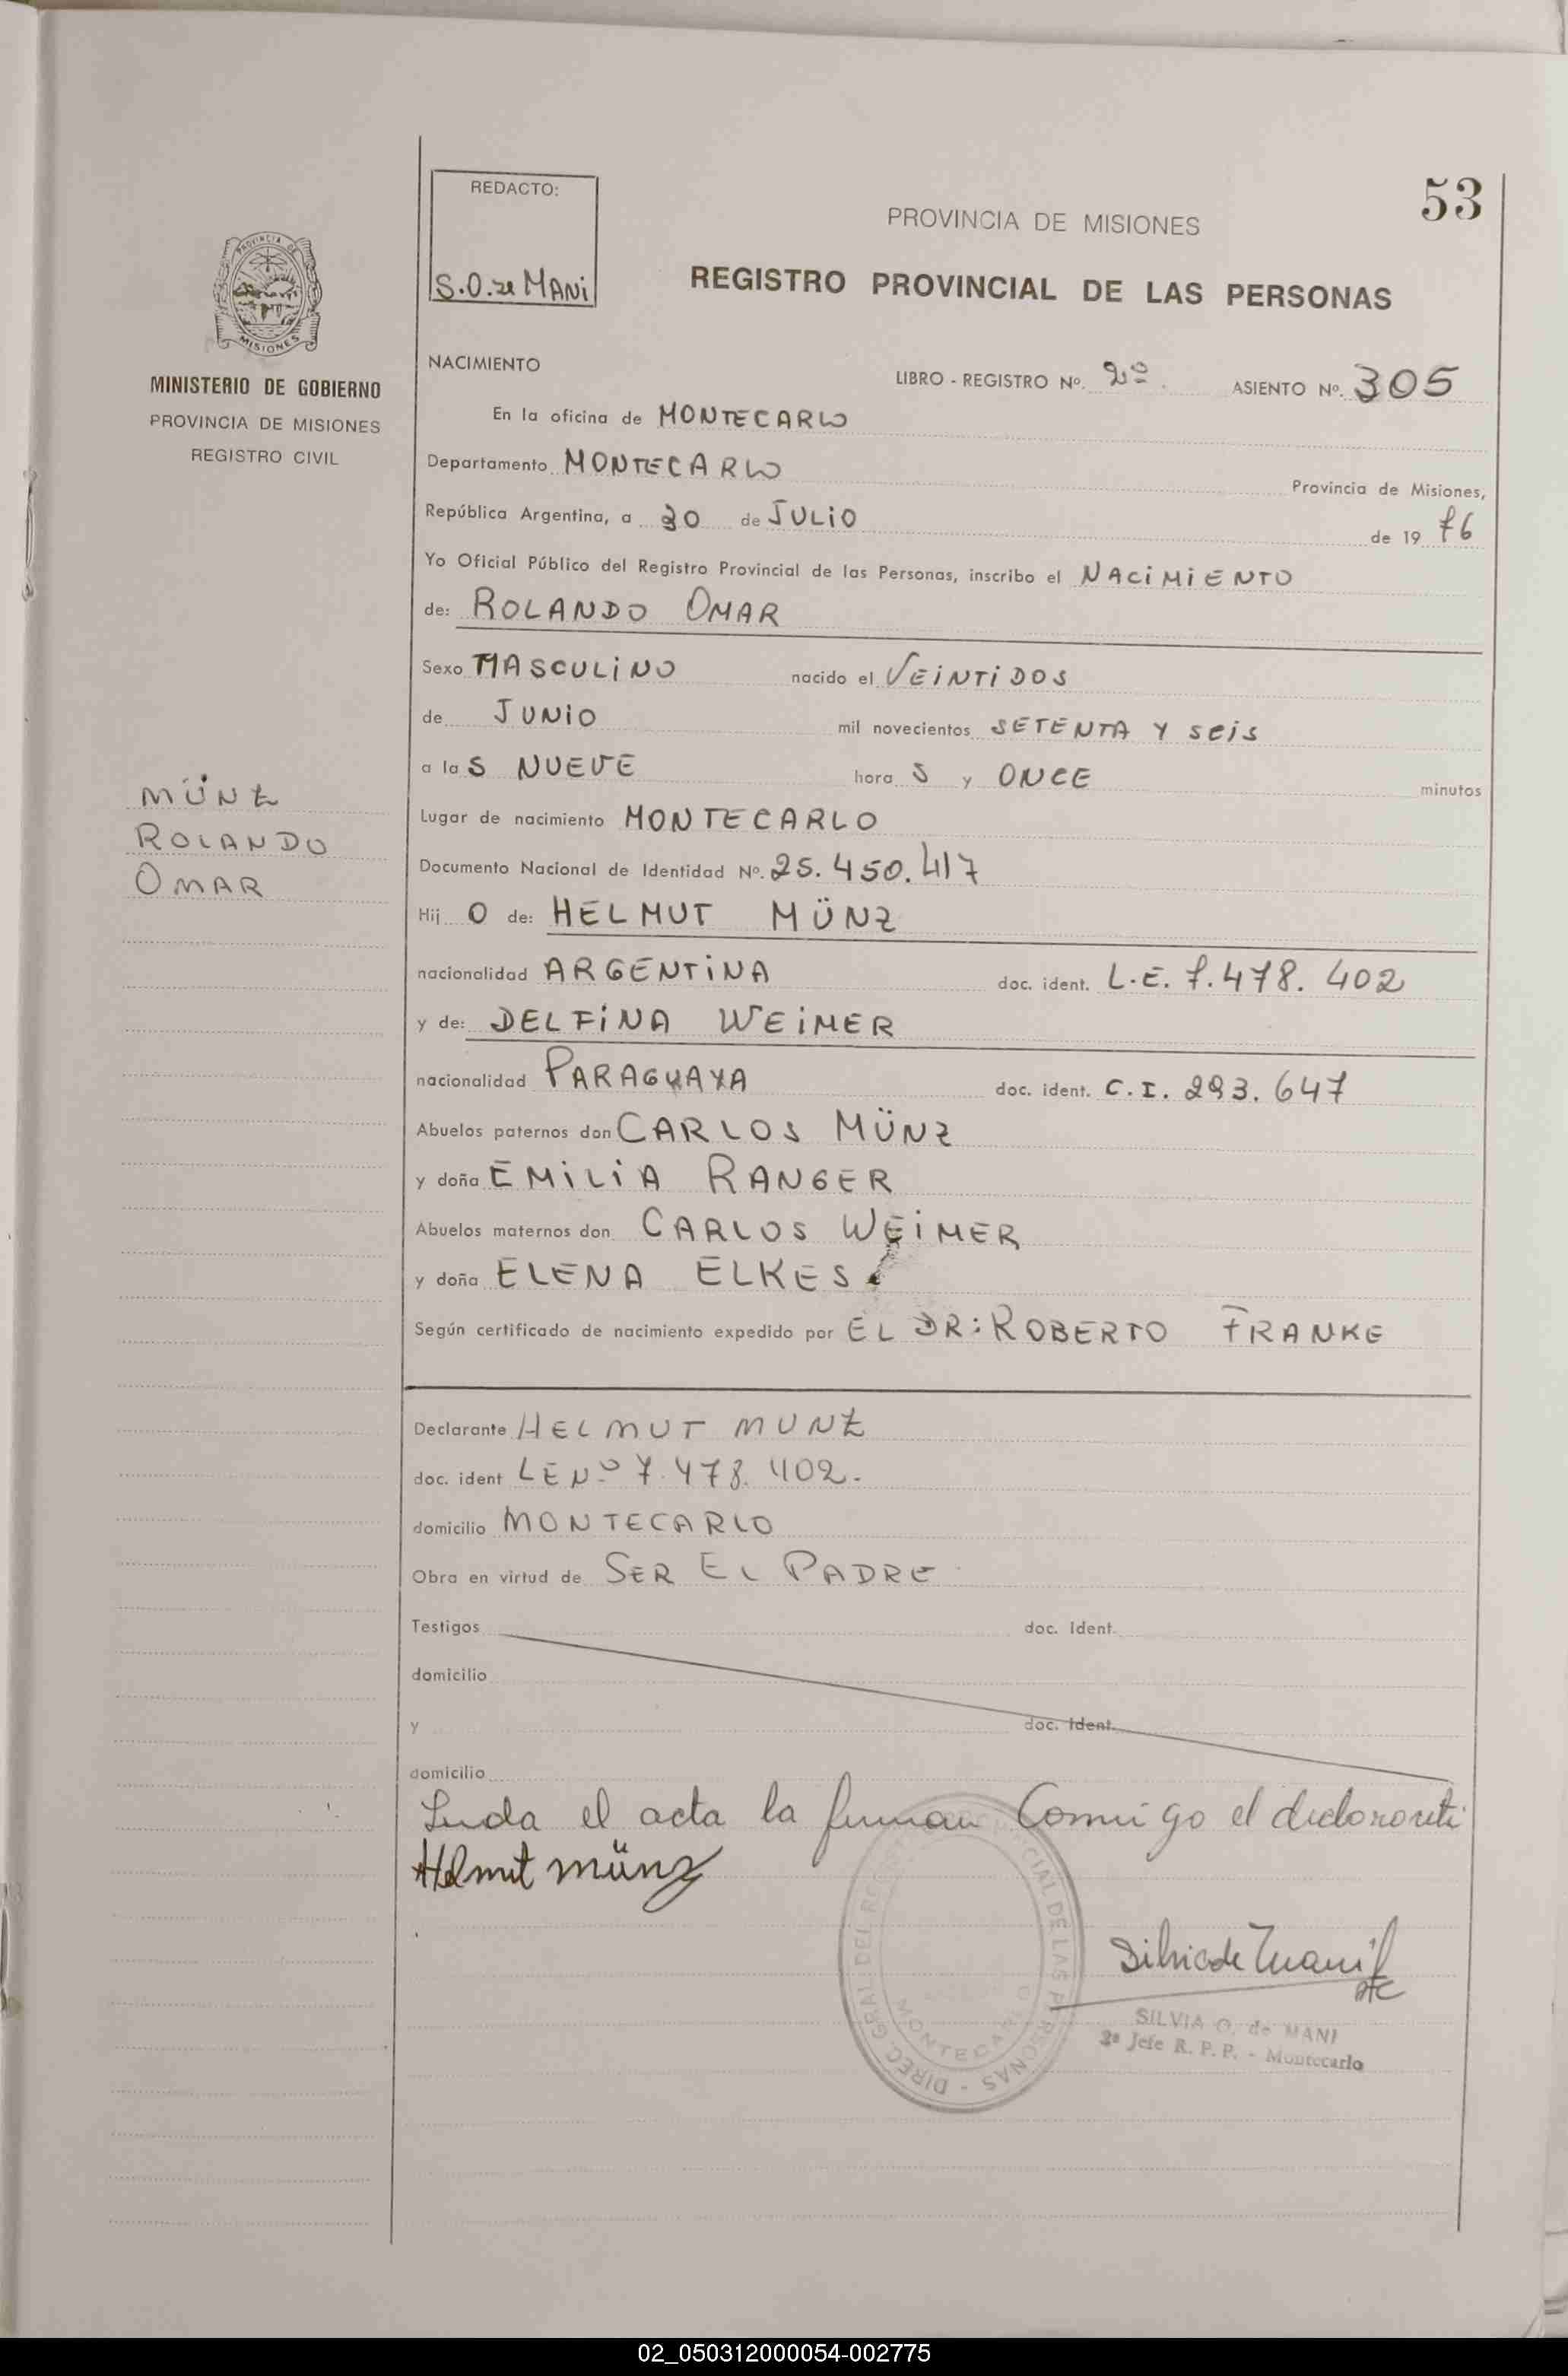 53
REDACTO:
S.O. de MANi
PROVINCIA DE MISIONES
REGISTRO PROVINCIAL DE LAS PERSONAS
PROVINCIA DE
MISIONES
MINISTERIO DE GOBIERNO
PROVINCIA DE MISIONES
REGISTRO CIVIL
NACIMIENTO
LIBRO - REGISTRO Nº. 2º. ASIENTO Nº. 305
En la oficina de MONTECARLO
Departamento MONTECARLO Provincia de Misiones,
República Argentina, a 30 de JULiO de 19 76
Yo Oficial Público del Registro Provincial de las Personas, inscribo el NACiMiENTO
de: ROLANDO OMAR
Sexo MASCULiNO nacido el VEiNTiDOS
de JUNiO mil novecientos SETENTA Y SEiS
a las NUEVE horas y ONCE minutos
MÜNZ
ROLANDO
OMAR
Lugar de nacimiento MONTECARLO
Documento Nacional de Identidad Nº. 25.450.417
Hij O de: HELMUT MÜNZ
nacionalidad ARGENTiNA doc. ident. L.E. 7.478.402
y de: DELFiNA WEiMER
nacionalidad PARAGUAYA doc. ident. C.I. 293.647
Abuelos paternos don CARLOS MÜNZ
y doña EMiLiA RANGER
Abuelos maternos don CARLOS WEiMER
y doña ELENA ELKES
Según certificado de nacimiento expedido por EL DR: ROBERTO FRANKE
Declarante HELMUT MUNZ
doc. ident LE Nº 7.478.402.
domicilio MONTECARLO
Obra en virtud de SER EL PADRE
Testigos doc. Ident.
domicilio
y doc. Ident.
domicilio
Leida el acta la firman Conmigo el declarante
Helmut Münz
DIREC. GRAL. DEL REG. PROVINCIAL DE LAS PERSONAS -
MONTECARLO
Silvia de Mani
SILVIA O. de MANI
2ª Jefe R. P. P. - Montecarlo
02_050312000054-002775